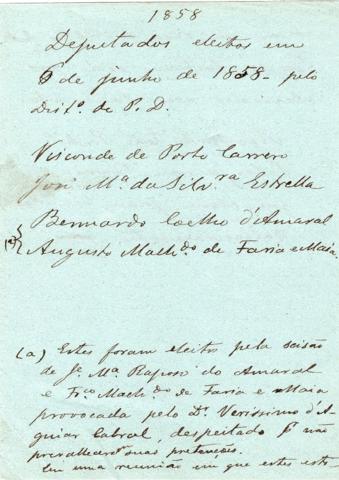 1858
Deputados eleitos em
6 de junho de 1858 - pelo
Dist.º de P. D.
Visconde de Porto Carrero
José M.ª da Silv.ra Estrella
Bernardo Coelho d'Amaral
(a) Augusto Mach.do de Faria e Maia.
(a) Estes foram eleitos pela scisão
de J.e M.ª Raposo do Amaral
e Fr.co Mach.do de Faria e Maia
provocada pelo Dr. Verissimo d'A
guiar Cabral, despeitado p.r não
prevalecer suas pretenções.
Em uma reunião em que estes esti-